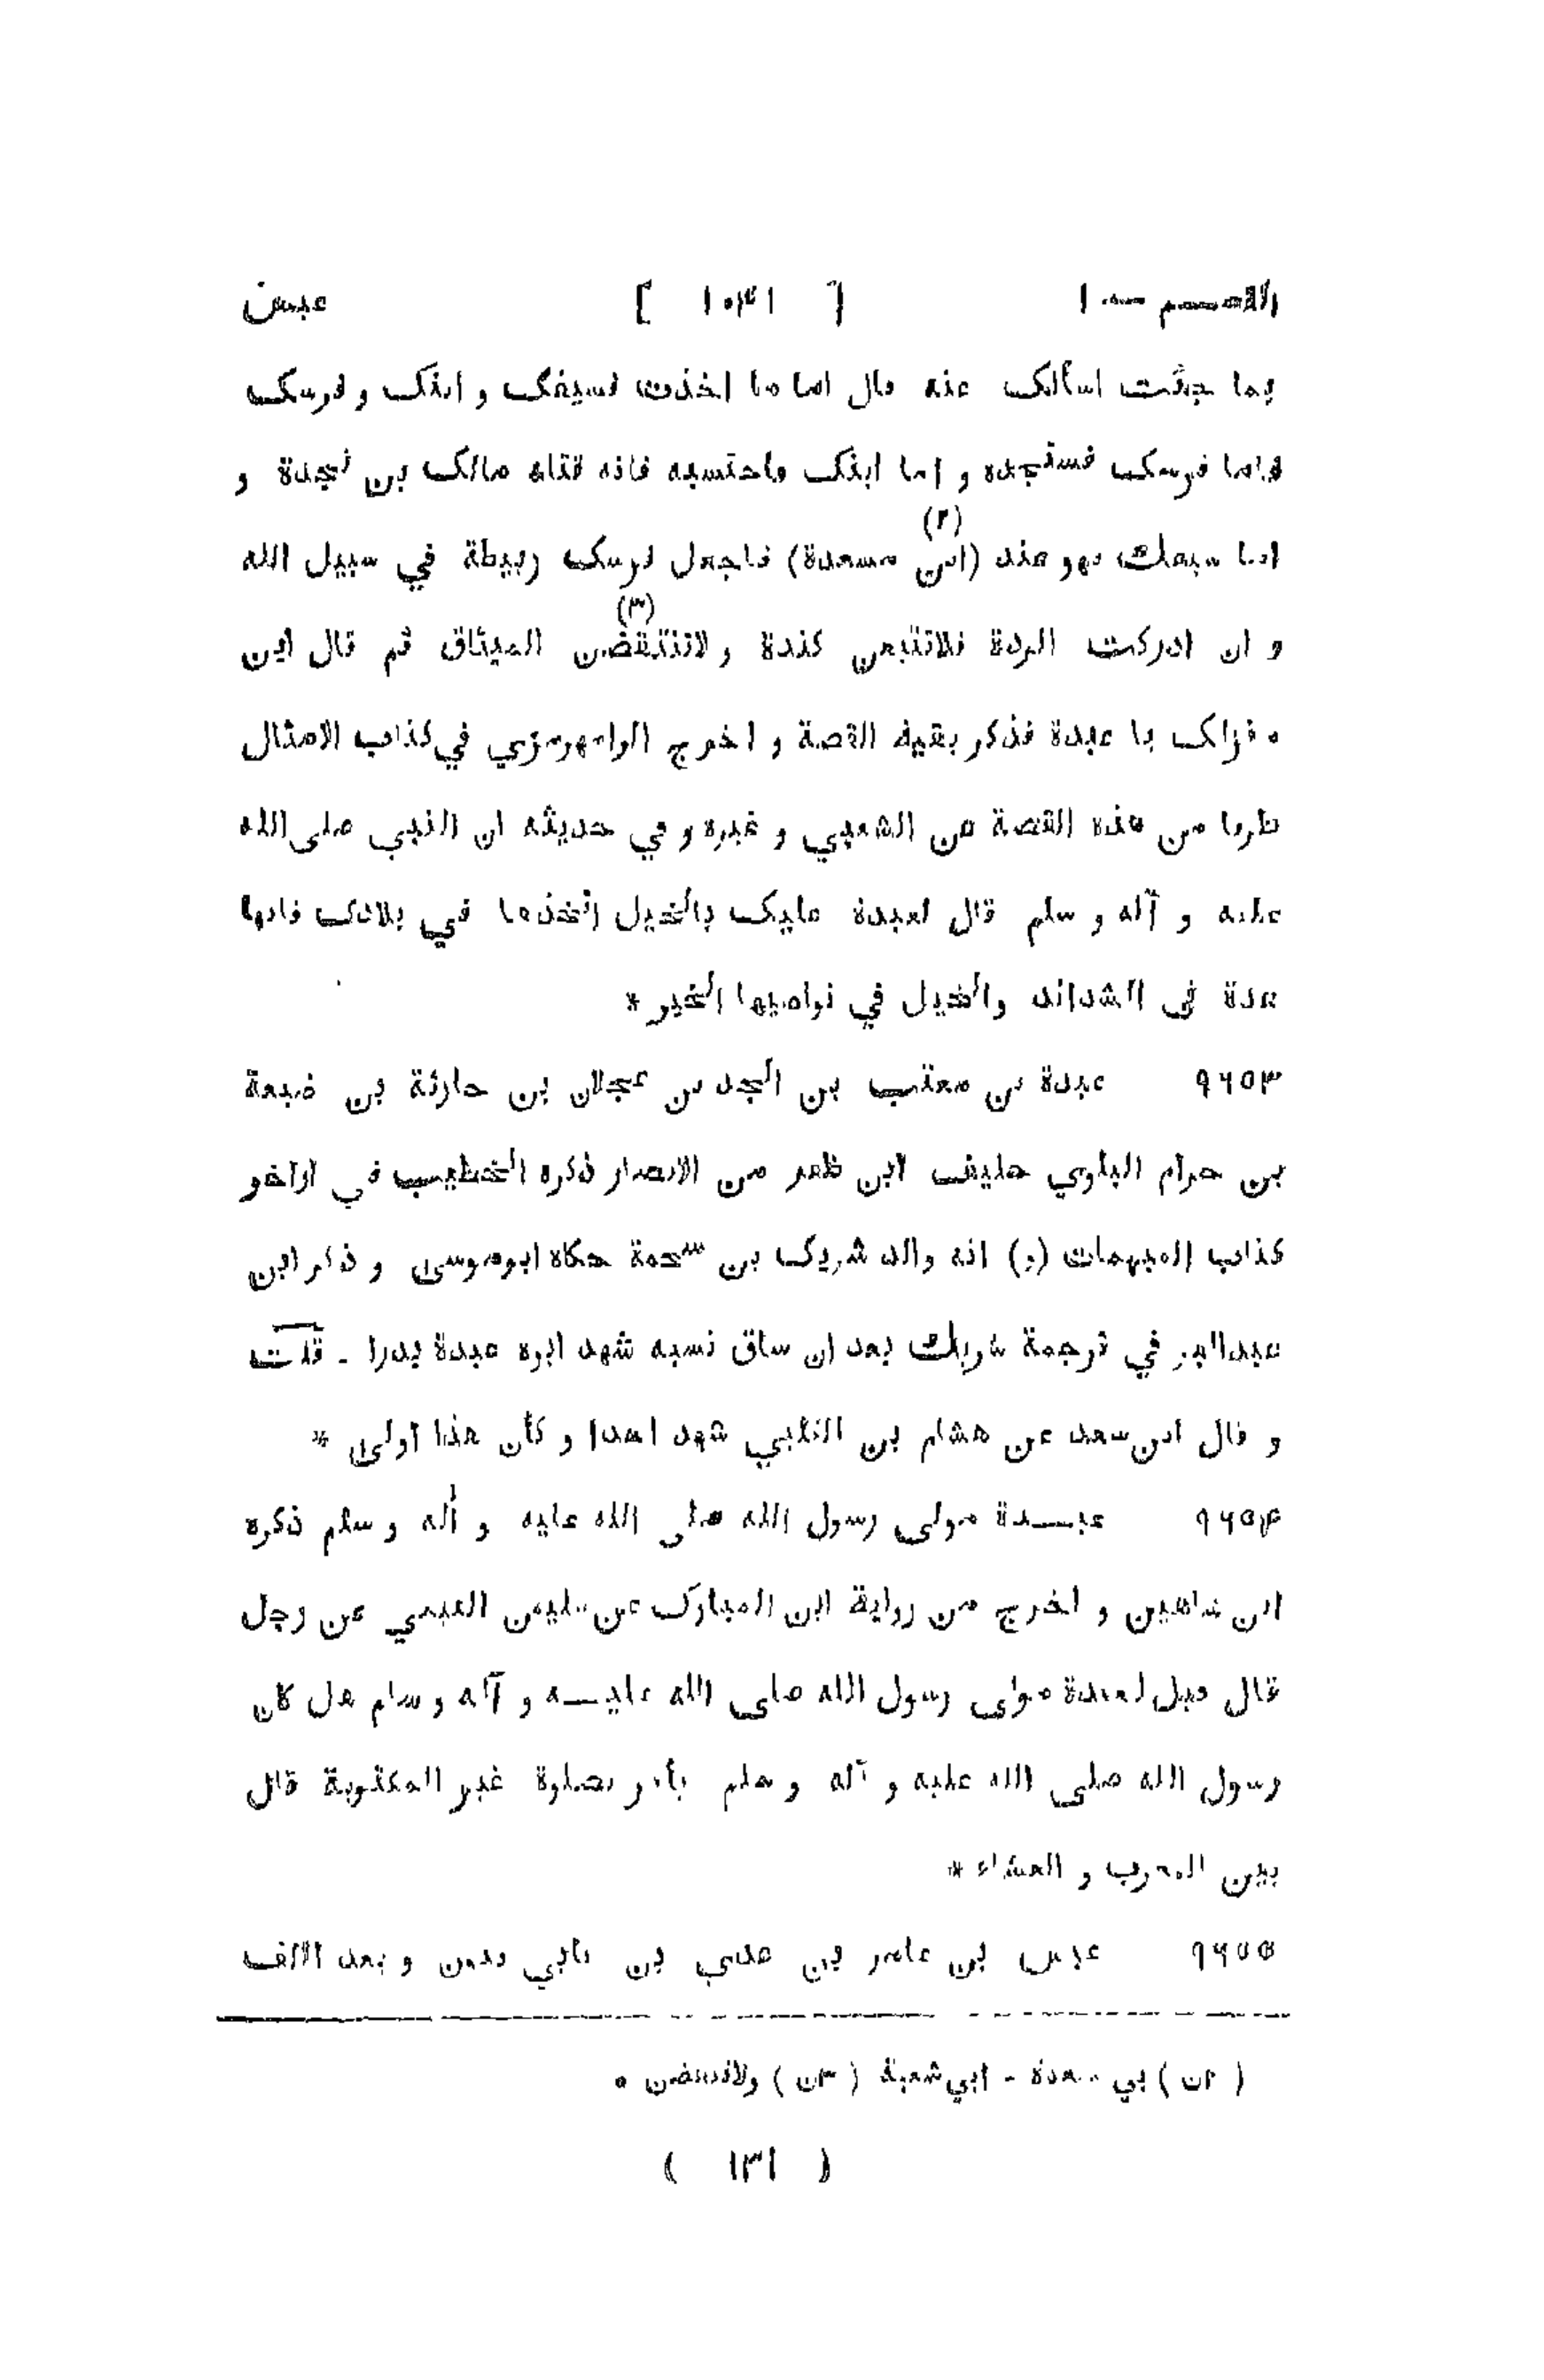 القسم — ١ [ ١٠٤١ ] عبس
بما جئت اسألك عنه قال اما ما اخذت فسيفك و ابنك و فرسك
فاما فرسك فستجده و اما ابنك فاحتسبه فانه قتله مالك بن نجدة و
اما سيفك فهو عند (ابن مسعدة) (٢) فاجعل فرسك ربيطة في سبيل الله
و ان ادركت الردة فلاتتبعن كندة و لاتنتقضن (٣) الميثاق ثم قال اين
مغزاك يا عبدة فذكر بقية القصة و اخرج الرامهرمزي في كتاب الامثال
طرفا من هذه القصة عن الشعبي و غيره و في حديثه ان النبي صلى الله
عليه و آله و سلم قال لعبدة عليك بالخيل اتخذها في بلادك فانها
عدة في الشدائد والخيل في نواصيها الخير *
٩٦٥٣ عبدة بن معتب بن الجد بن عجلان بن حارثة بن ضبعة
بن حرام البلوي حليف ابن ظفر من الانصار ذكره الخطيب في اواخر
كتاب المبهمات (و) انه والد شريك بن سحمة حكاه ابوموسى و ذكر ابن
عبدالبر في ترجمة شريك بعد ان ساق نسبه شهد ابوه عبدة بدرا - قلت
و قال ابن سعد عن هشام بن الكلبي شهد احدا و كأن هذا اولى *
٩٦٥٤ عبـــدة مولى رسول الله صلى الله عليه و أله و سلم ذكره
ابن شاهين و اخرج من رواية ابن المبارك عن سليمن التيمي عن رجل
قال قيل لعبدة مولى رسول الله صلى الله عليـــه و آله و سلم هل كان
رسول الله صلى الله عليه و آله و سلم يأمر بصلوة غير المكتوبة قال
بين المغرب و العشاء *
٩٦٥٥ عبس بن عامر بن عدي بن نابي بنون و بعد الالف
( ٢ن ) بي سعدة - ابي شعبة ( ٣ن )
( ١٣١ )